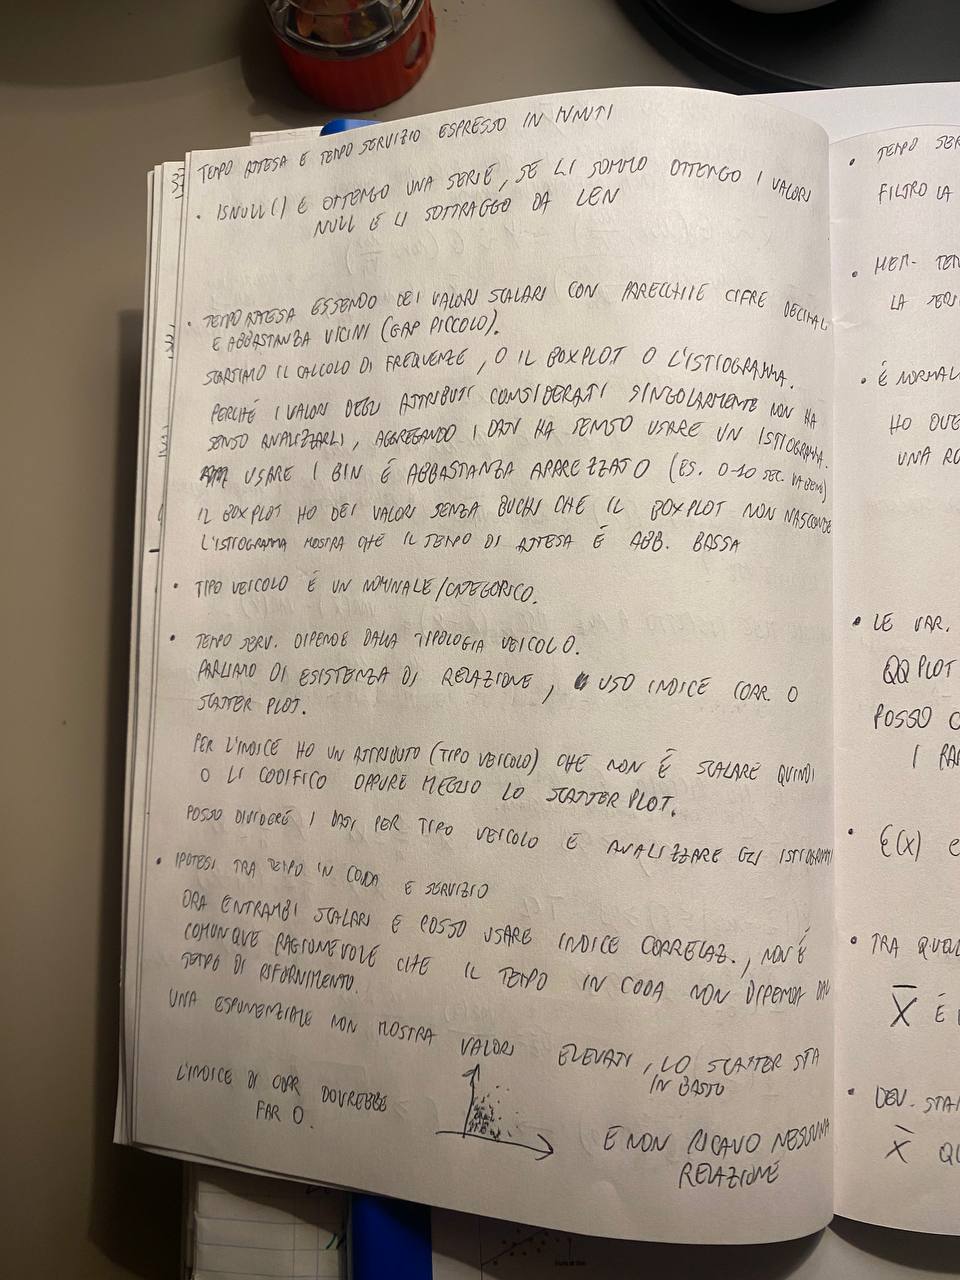 TEMPO ATTESA E TEMPO SERVIZIO ESPRESSO IN MINUTI
• ISNULL() E OTTENGO UNA SERIE, SE LI SOMMO OTTENGO I VALORI
NULL E LI SOTTRAGGO DA LEN
• TEMPO ATTESA ESSENDO DEI VALORI SCALARI CON PARECCHIE CIFRE DECIMALI
E ABBASTANZA VICINI (GAP PICCOLO).
SCARTIAMO IL CALCOLO DI FREQUENZE, O IL BOXPLOT O L'ISTOGRAMMA.
PERCHÉ I VALORI DEGLI ATTRIBUTI CONSIDERATI SINGOLARMENTE NON HA
SENSO ANALIZZARLI, AGGREGANDO I DATI HA SENSO USARE UN ISTOGRAMMA.
USARE I BIN È ABBASTANZA APPREZZATO (ES. 0-10 SEC. VA BENE)
IL BOXPLOT HO DEI VALORI SENZA BUCHI CHE IL BOXPLOT NON NASCONDE
L'ISTOGRAMMA MOSTRA CHE IL TEMPO DI ATTESA È ABB. BASSA
• TIPO VEICOLO È UN NOMINALE/CATEGORICO.
• TEMPO SERV. DIPENDE DALLA TIPOLOGIA VEICOLO.
PARLIAMO DI ESISTENZA DI RELAZIONE, USO INDICE CORR. O
SCATTER PLOT.
PER L'INDICE HO UN ATTRIBUTO (TIPO VEICOLO) CHE NON È SCALARE QUINDI
O LI CODIFICO OPPURE MEGLIO LO SCATTER PLOT.
POSSO DIVIDERE I DATI PER TIPO VEICOLO E ANALIZZARE GLI ISTOGRAMMI
• IPOTESI TRA TEMPO IN CODA E SERVIZIO
ORA ENTRAMBI SCALARI E POSSO USARE INDICE CORRELAZ., NON È
COMUNQUE RAGIONEVOLE CHE IL TEMPO IN CODA NON DIPENDA DAL
TEMPO DI RIFORNIMENTO.
UNA ESPONENZIALE NON MOSTRA VALORI ELEVATI, LO SCATTER STA
IN BASSO
L'INDICE DI CORR DOVREBBE
FAR 0.
E NON RICAVO NESSUNA
RELAZIONE
• TEMPO SER
FILTRO LA
• MEM- TEM
LA
• È NORMAL
HO QUE
UNA RO
• LE VAR.
QQPLOT
POSSO
I RA
• E(X) e
• TRA QUEL
X̄ È
• DEV. STA
X̄ QU